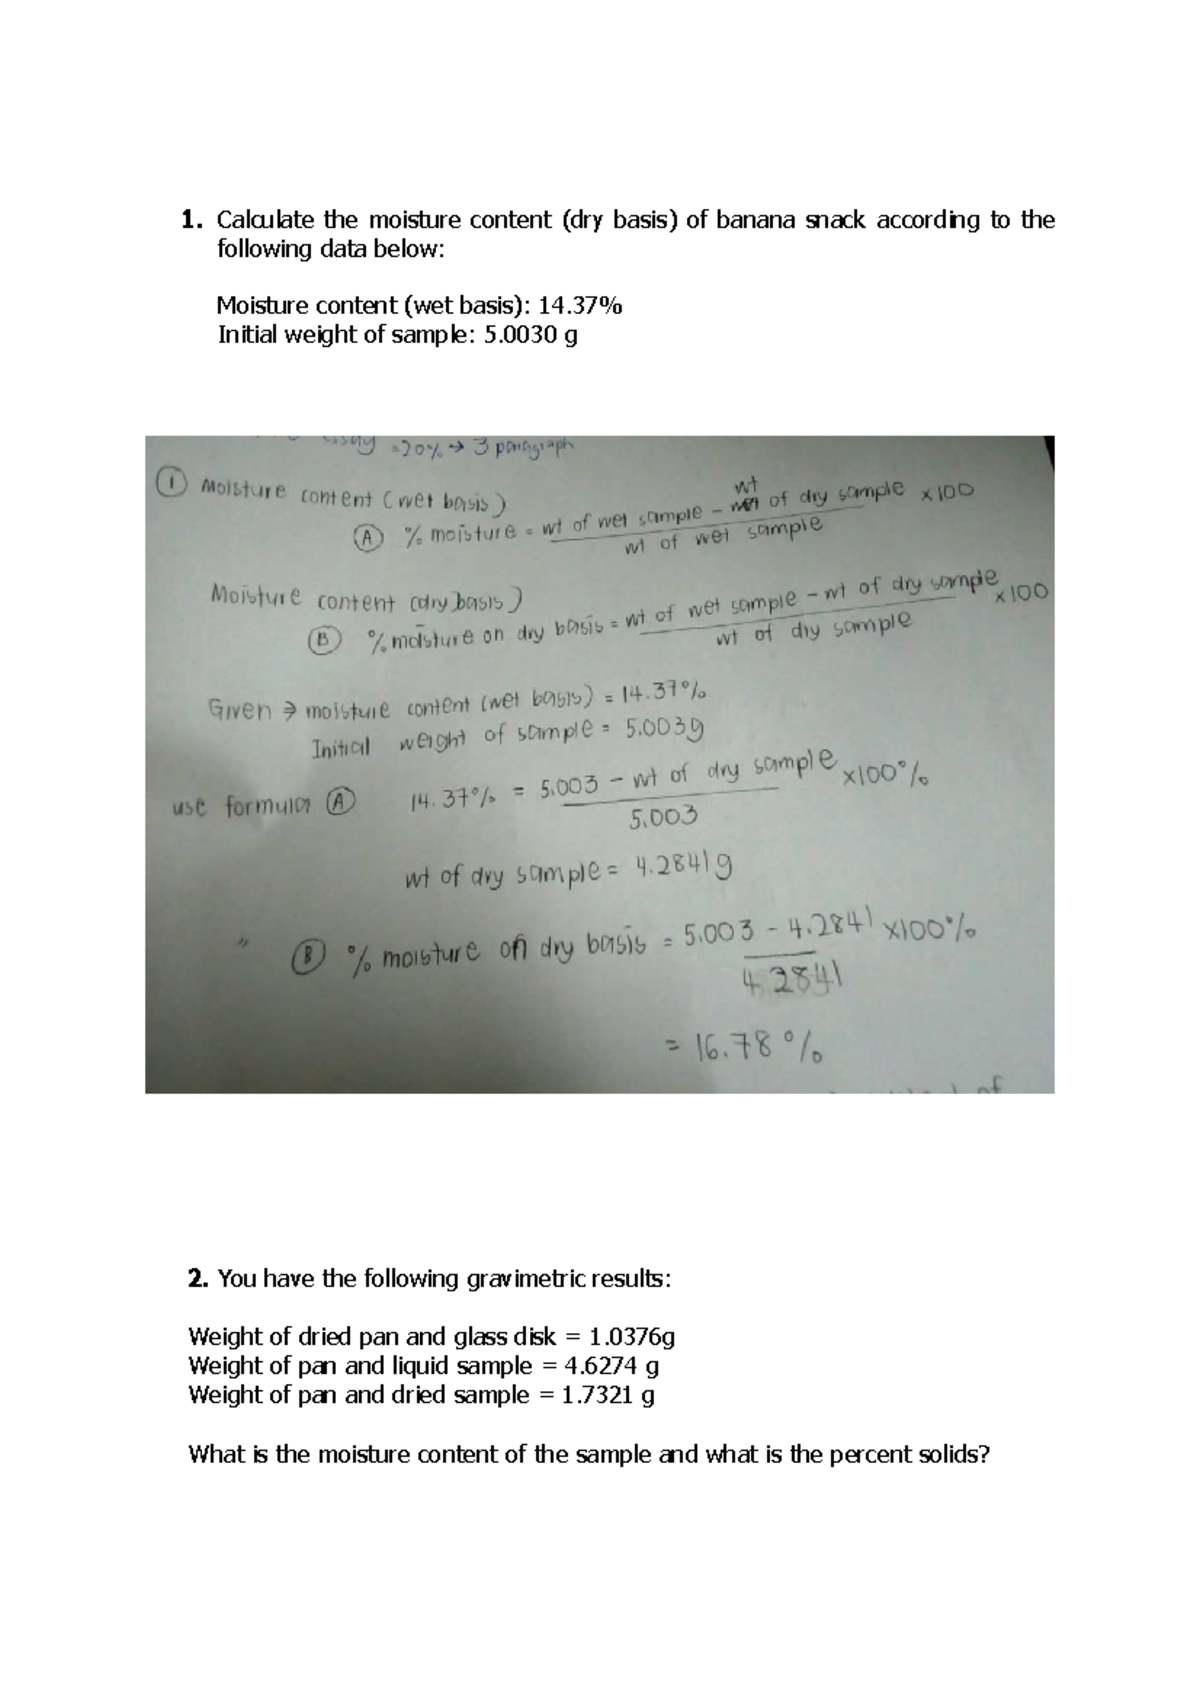 1. Calculate the moisture content (dry basis) of banana snack according to the
following data below:
Moisture content (wet basis): 14.37%
Initial weight of sample: 5.0030 g
essay =20% → 3 paragraph
① Moisture content (wet basis)
Ⓐ % moisture = wt of wet sample - wt of dry sample x100
wt of wet sample
Moisture content (dry basis)
Ⓑ % moisture on dry basis = wt of wet sample - wt of dry sample x100
wt of dry sample
Given → moisture content (wet basis) = 14.37%
Initial weight of sample = 5.003g
use formula Ⓐ 14.37% = 5.003 - wt of dry sample x100%
5.003
wt of dry sample = 4.2841g
" Ⓑ % moisture on dry basis = 5.003 - 4.2841 x100%
4.2841
= 16.78%
of
2. You have the following gravimetric results:
Weight of dried pan and glass disk = 1.0376g
Weight of pan and liquid sample = 4.6274 g
Weight of pan and dried sample = 1.7321 g
What is the moisture content of the sample and what is the percent solids?